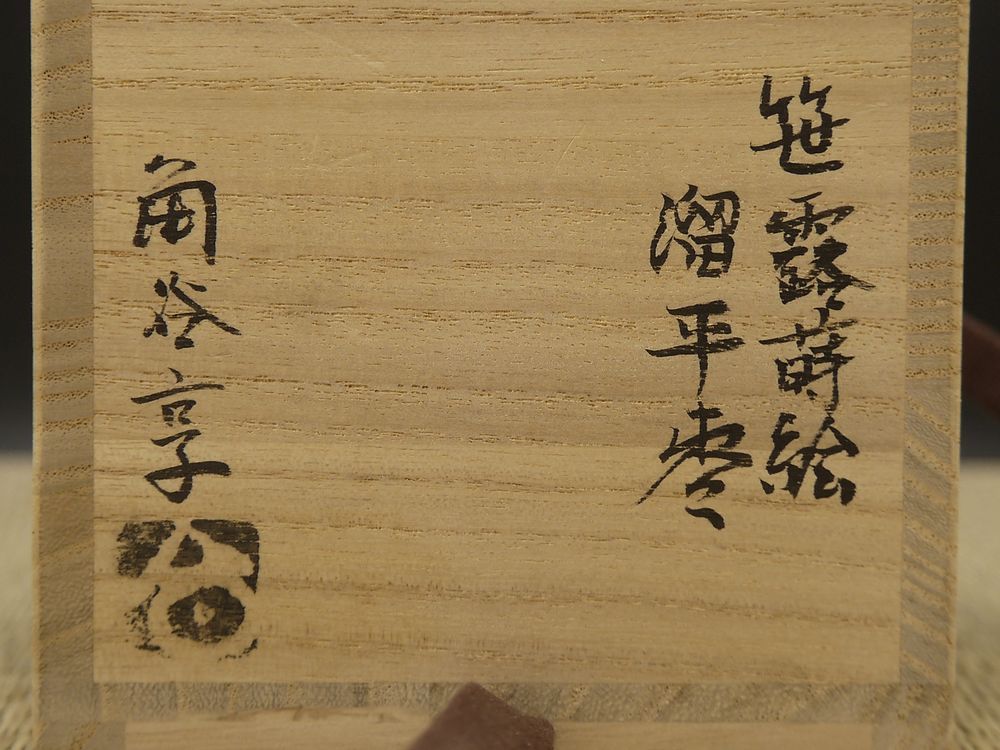 笹露蒔絵
溜平棗
角谷享